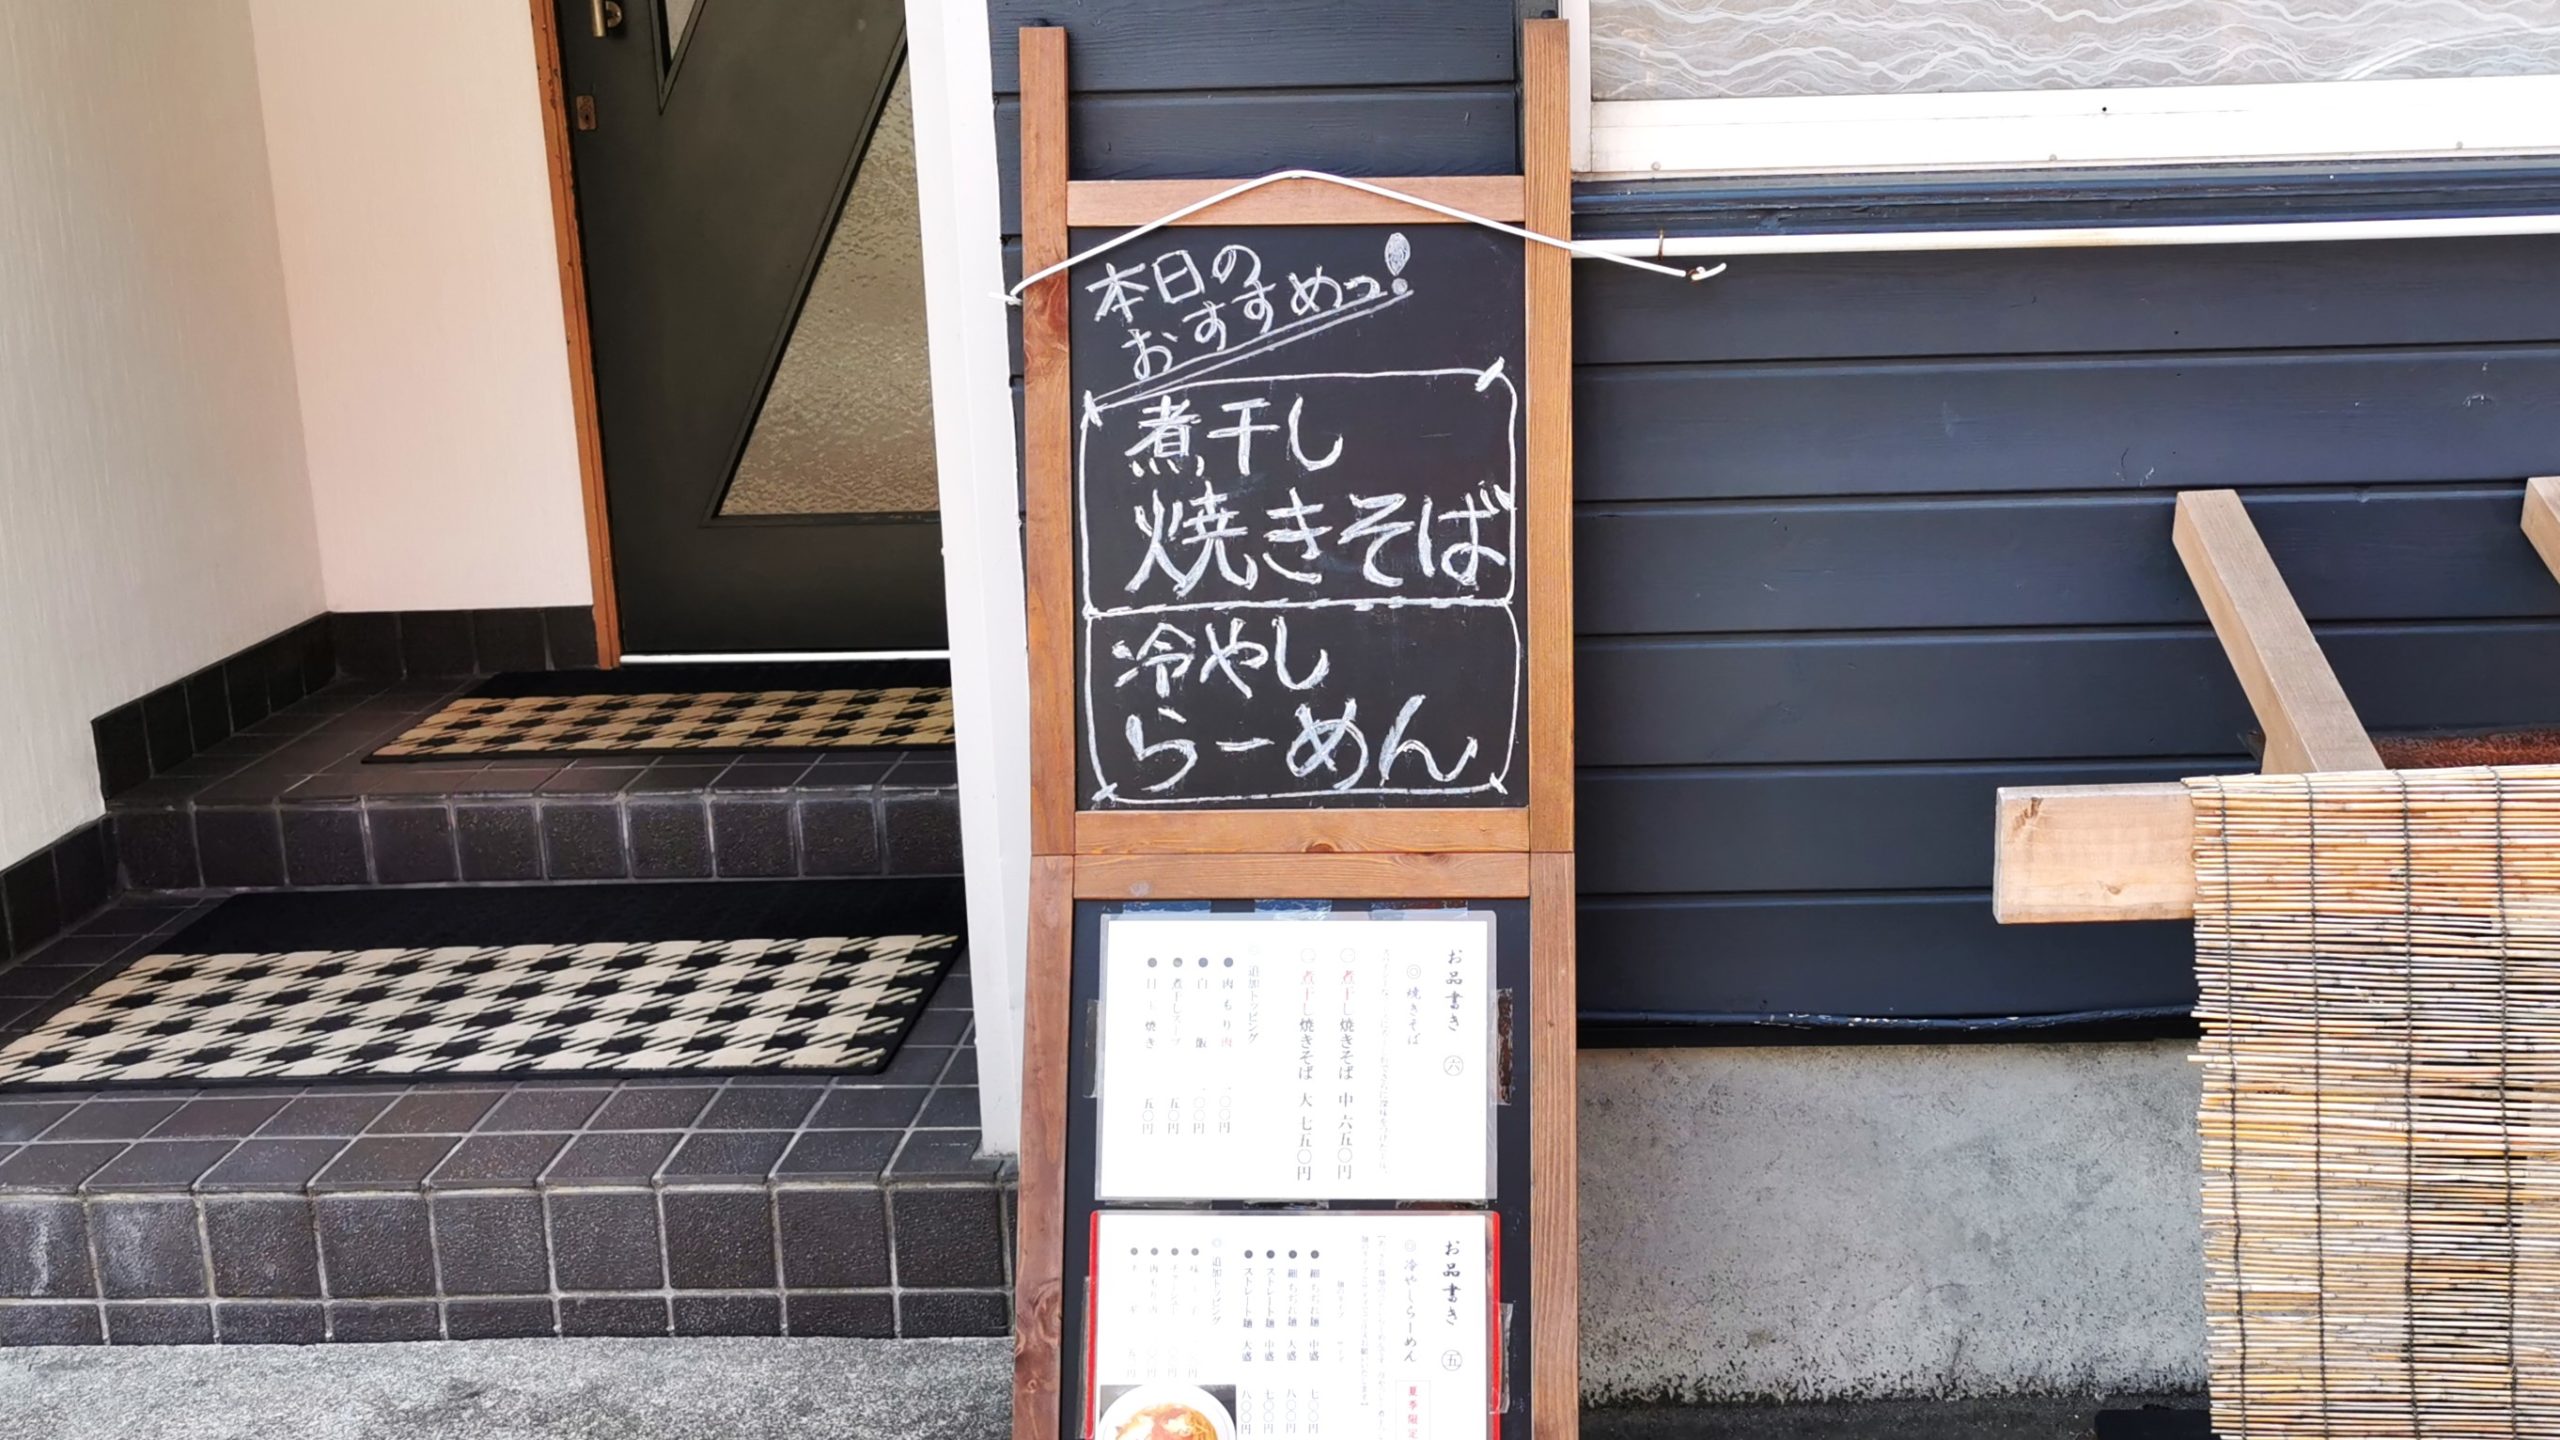 本日の
おすすめっ!
煮干し
焼きそば
冷やし
らーめん
お品書き 六
◎焼きそば
煮干し焼きそば 中 六五〇円
煮干し焼きそば 大 七五〇円
◎追加トッピング
●肉もり肉 一〇〇円
●白飯 一〇〇円
●煮干しスープ 五〇円
●目玉焼き 五〇円
お品書き 五
◎冷やしらーめん 夏季限定
●細ちぢれ麺 中盛 七〇〇円
●細ちぢれ麺 大盛 八〇〇円
●ストレート麺 中盛 七〇〇円
●ストレート麺 大盛 八〇〇円
◎追加トッピング